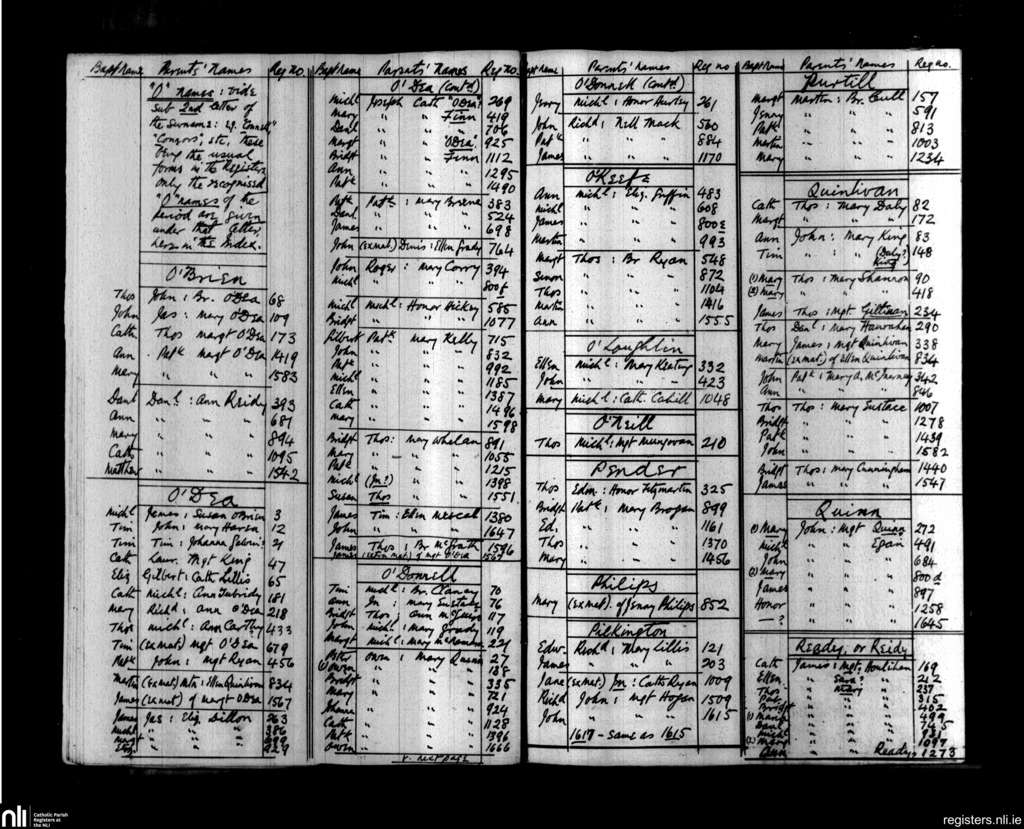 Bapt name Parents' names Reg no.
"O" names: vide
sub 2nd letter of
the surnames: eg. Connell,
"Connors", etc, these
being the usual
forms in the Register
only the recognised
"O" names of the
period are given
under that letter,
here in the Index.
O'Brien
Thos John: Br. O'Dea 68
John Jas: Mary O'Dea 109
Cath Thos Margt O'Dea 173
Ann Patk Magt O'Dea 1419
Mary " " " 1583
Danl Danl: Ann Reidy 393
Ann " " " 687
Mary " " " 894
Cath " " " 1095
Matthew " " " 1542
O'Dea
Michl James: Susan O'Brien 3
Tim John: Mary Haren 12
Tim Tim: Johanna 21
Cath Laur. Mgt King 47
Eliz Gilbert: Cath Lillis 65
Cath Michl: Ann Tubridy 181
Mary Richd: Ann O'Dea 218
Thos Michl: Ann Carthy 433
Tim (ex mat) Mgt O'Dea 679
Patk John: Mgt Ryan 456
Martin (ex mat) Mtn: Ellen Quinlivan 834
James (ex mat) of Margt O'Dea 1567
James Jas: Eliz. Dillon 263
Michl " " " 386
Margt " " " 699
Eliz " " " 929
Bapt name Parents' names Reg no.
O'Dea (Contd)
Michl Joseph Cath "O'Dea" 269
Mary " " Finn 419
Danl " " " 706
Margt " " "O'Dea" 925
Bridgt " " Finn 1112
Ann " " " 1295
Patk " " " 1490
Patk Patk: Mary Breene 383
Danl " " " 524
James " " " 698
John (ex mat) Denis: Ellen Grady 764
John Roger: Mary Corry 394
Michl " " " 800f
Michl Michl: Honor Hickey 585
Bridgt " " " 1077
Gilbert Patk: Mary Kelly 715
John " " " 832
Patk " " " 992
Michl " " " 1185
Ellen " " " 1387
Cath " " " 1496
Mary " " " 1598
Bridgt Thos: Mary Whelan 891
Mary " " " 1055
Patk " " " 1215
Michl (Jn?) " " 1398
Susan Thos " " 1551
James Tim: Ellen Mescal 1380
John " " " 1647
James Thos: Br McGrath 1596
James (ex mat) of Mgt O'Dea 1567
O'Donnell
Tim Michl: Br. Clancy 70
Ann Jn: Mary Eustace 76
Bridgt Thos: Ann 117
John Michl: Mary Grady 119
Margt Michl: Mary McNamara 221
Peter Owen: Mary Quinn 27
(1) Owen " " " 138
Bridgt " " " 335
Mary " " " 721
Johanna " " " 924
Cath " " " 1128
Patk " " " 1396
Owen " " " 1666
v. next page
Bapt name Parents' names Reg no
O'Donnell (Contd.)
Jenny Michl: Honor Hurley 261
John Richd: Nell Mack 560
Patk " " " 884
James " " " 1170
O'Keefe
Ann Michl: Eliz. Griffin 483
Michl " " " 608
James " " " 800e
Martin " " " 993
Margt Thos: Br Ryan 548
Simon " " " 872
Thos " " " 1104
Martin " " " 1416
Ann " " " 1555
O'Loughlin
Ellen Michl: Mary Keating 332
John " " " 423
Mary Michl: Cath. Cahill 1048
O'Neill
Thos Michl: Mgt Mungovan 210
Pender
Thos Edm: Honor Fitzmartin 325
Bridgt Patk: Mary Brogan 899
Ed. " " " 1161
Thos " " " 1370
Mary " " " 1456
Philips
Mary (ex mat) of Jenny Philips 852
Pilkington
Edw. Richd: Mary Lillis 121
James " " " 203
Jane (ex mat) Jn: Cath Ryan 1009
Richd John: Mgt Hogan 1509
John " " " 1615
1617 - same as 1615
Bapt name Parents' names Reg no.
Purtill
Margt Martin: Br. Cull 157
Jenny " " " 591
Patk " " " 813
Martin " " " 1003
Mary " " " 1234
Quinlivan
Cath Thos: Mary Daly 82
Margt " " " 172
Ann John: Mary King 83
Tim " " (Daly? King) 148
(1) Mary Thos: Mary Shannon 90
(2) Mary " " " 418
James Thos: Mgt Gilligan 234
Thos Danl: Mary Hanrahan 290
Mary James: Mgt Quinlivan 338
Martin (ex mat) of Ellen Quinlivan 834
John Patk: Mary A. McInerney 342
Ann " " " 846
Thos Thos: Mary Eustace 1007
Bridgt " " " 1278
Patk " " " 1439
John " " " 1582
Bridgt Thos: Mary Cunningham 1440
James " " " 1547
Quinn
(1) Mary John: Mgt Quinn 272
Michl " " Egan 491
John " " " 684
(2) Mary " " " 800d
James " " " 897
Honor " " " 1258
—? " " " 1645
Ready, or Reidy
Cath James: Mgt. Houlihan 169
Ellen " Sara? " 212
Thos " Mary " 237
Patk " " " 315
Bridgt " " " 402
(1) Margt " " " 499
Danl " " " 725
Michl " " " 931
(2) Margt " " " 1097
Ann " " Ready, 1273
nli
Catholic Parish
Registers at
the NLI
registers.nli.ie